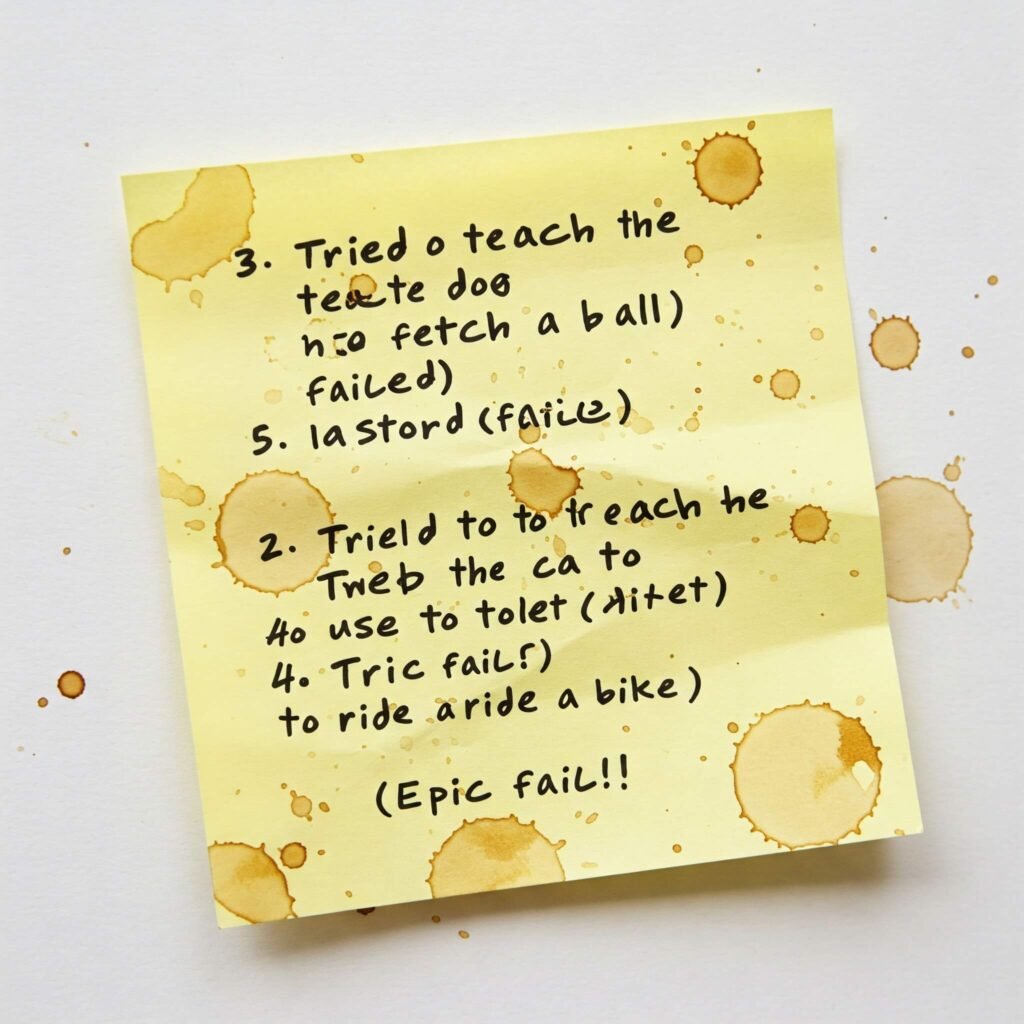 3. Tried o teach the
dog
fetch a ball)
failed)
5. lastord (failce)
2. Trield to to tr each he
Tweb the ca to
use to tolet
4. Tric fail!)
to ride a ride a bike)
(Epic fail!!